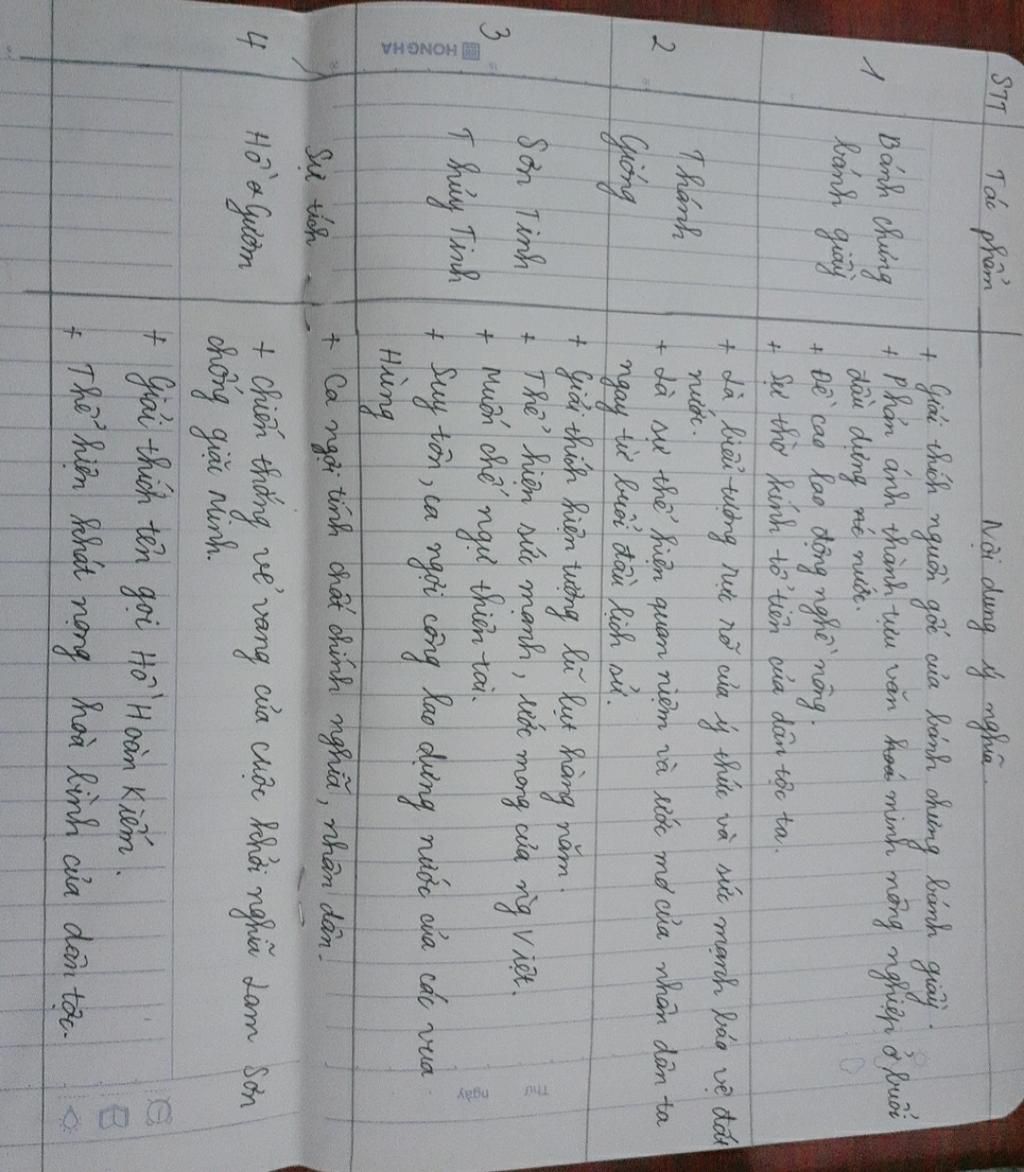 STT Tác phẩm Nội dung ý nghĩa
1 Bánh chưng
bánh giầy
+ Giải thích nguồn gốc của bánh chưng bánh giầy.
+ Phản ánh thành tựu văn hoá minh nông nghiệp ở buổi
đầu dựng nc nước.
+ Đề cao lao động nghề nông.
+ Sự thờ kính tổ tiên của dân tộc ta.
2 Thánh
Gióng
+ Là biểu tượng rực rỡ của ý thức và sức mạnh bảo vệ đất
nước.
+ Là sự thể hiện quan niệm và ước mơ của nhân dân ta
ngay từ buổi đầu lịch sử.
3 Sơn Tinh
Thủy Tinh
+ Giải thích hiện tượng lũ lụt hàng năm.
+ Thể hiện sức mạnh, ước mong của ng Việt.
+ Muốn chế ngự thiên tai.
+ Suy tôn, ca ngợi công lao dựng nước của các vua
Hùng
HONG HA
4 Sự tích
Hồ Gươm
+ Ca ngợi tính chất chính nghĩa, nhân dân.
+ Chiến thắng vẻ vang của cuộc khởi nghĩa Lam Sơn
chống giặc Minh.
+ Giải thích tên gọi Hồ Hoàn Kiếm.
+ Thể hiện khát vọng hoà bình của dân tộc.
Thứ
ngày